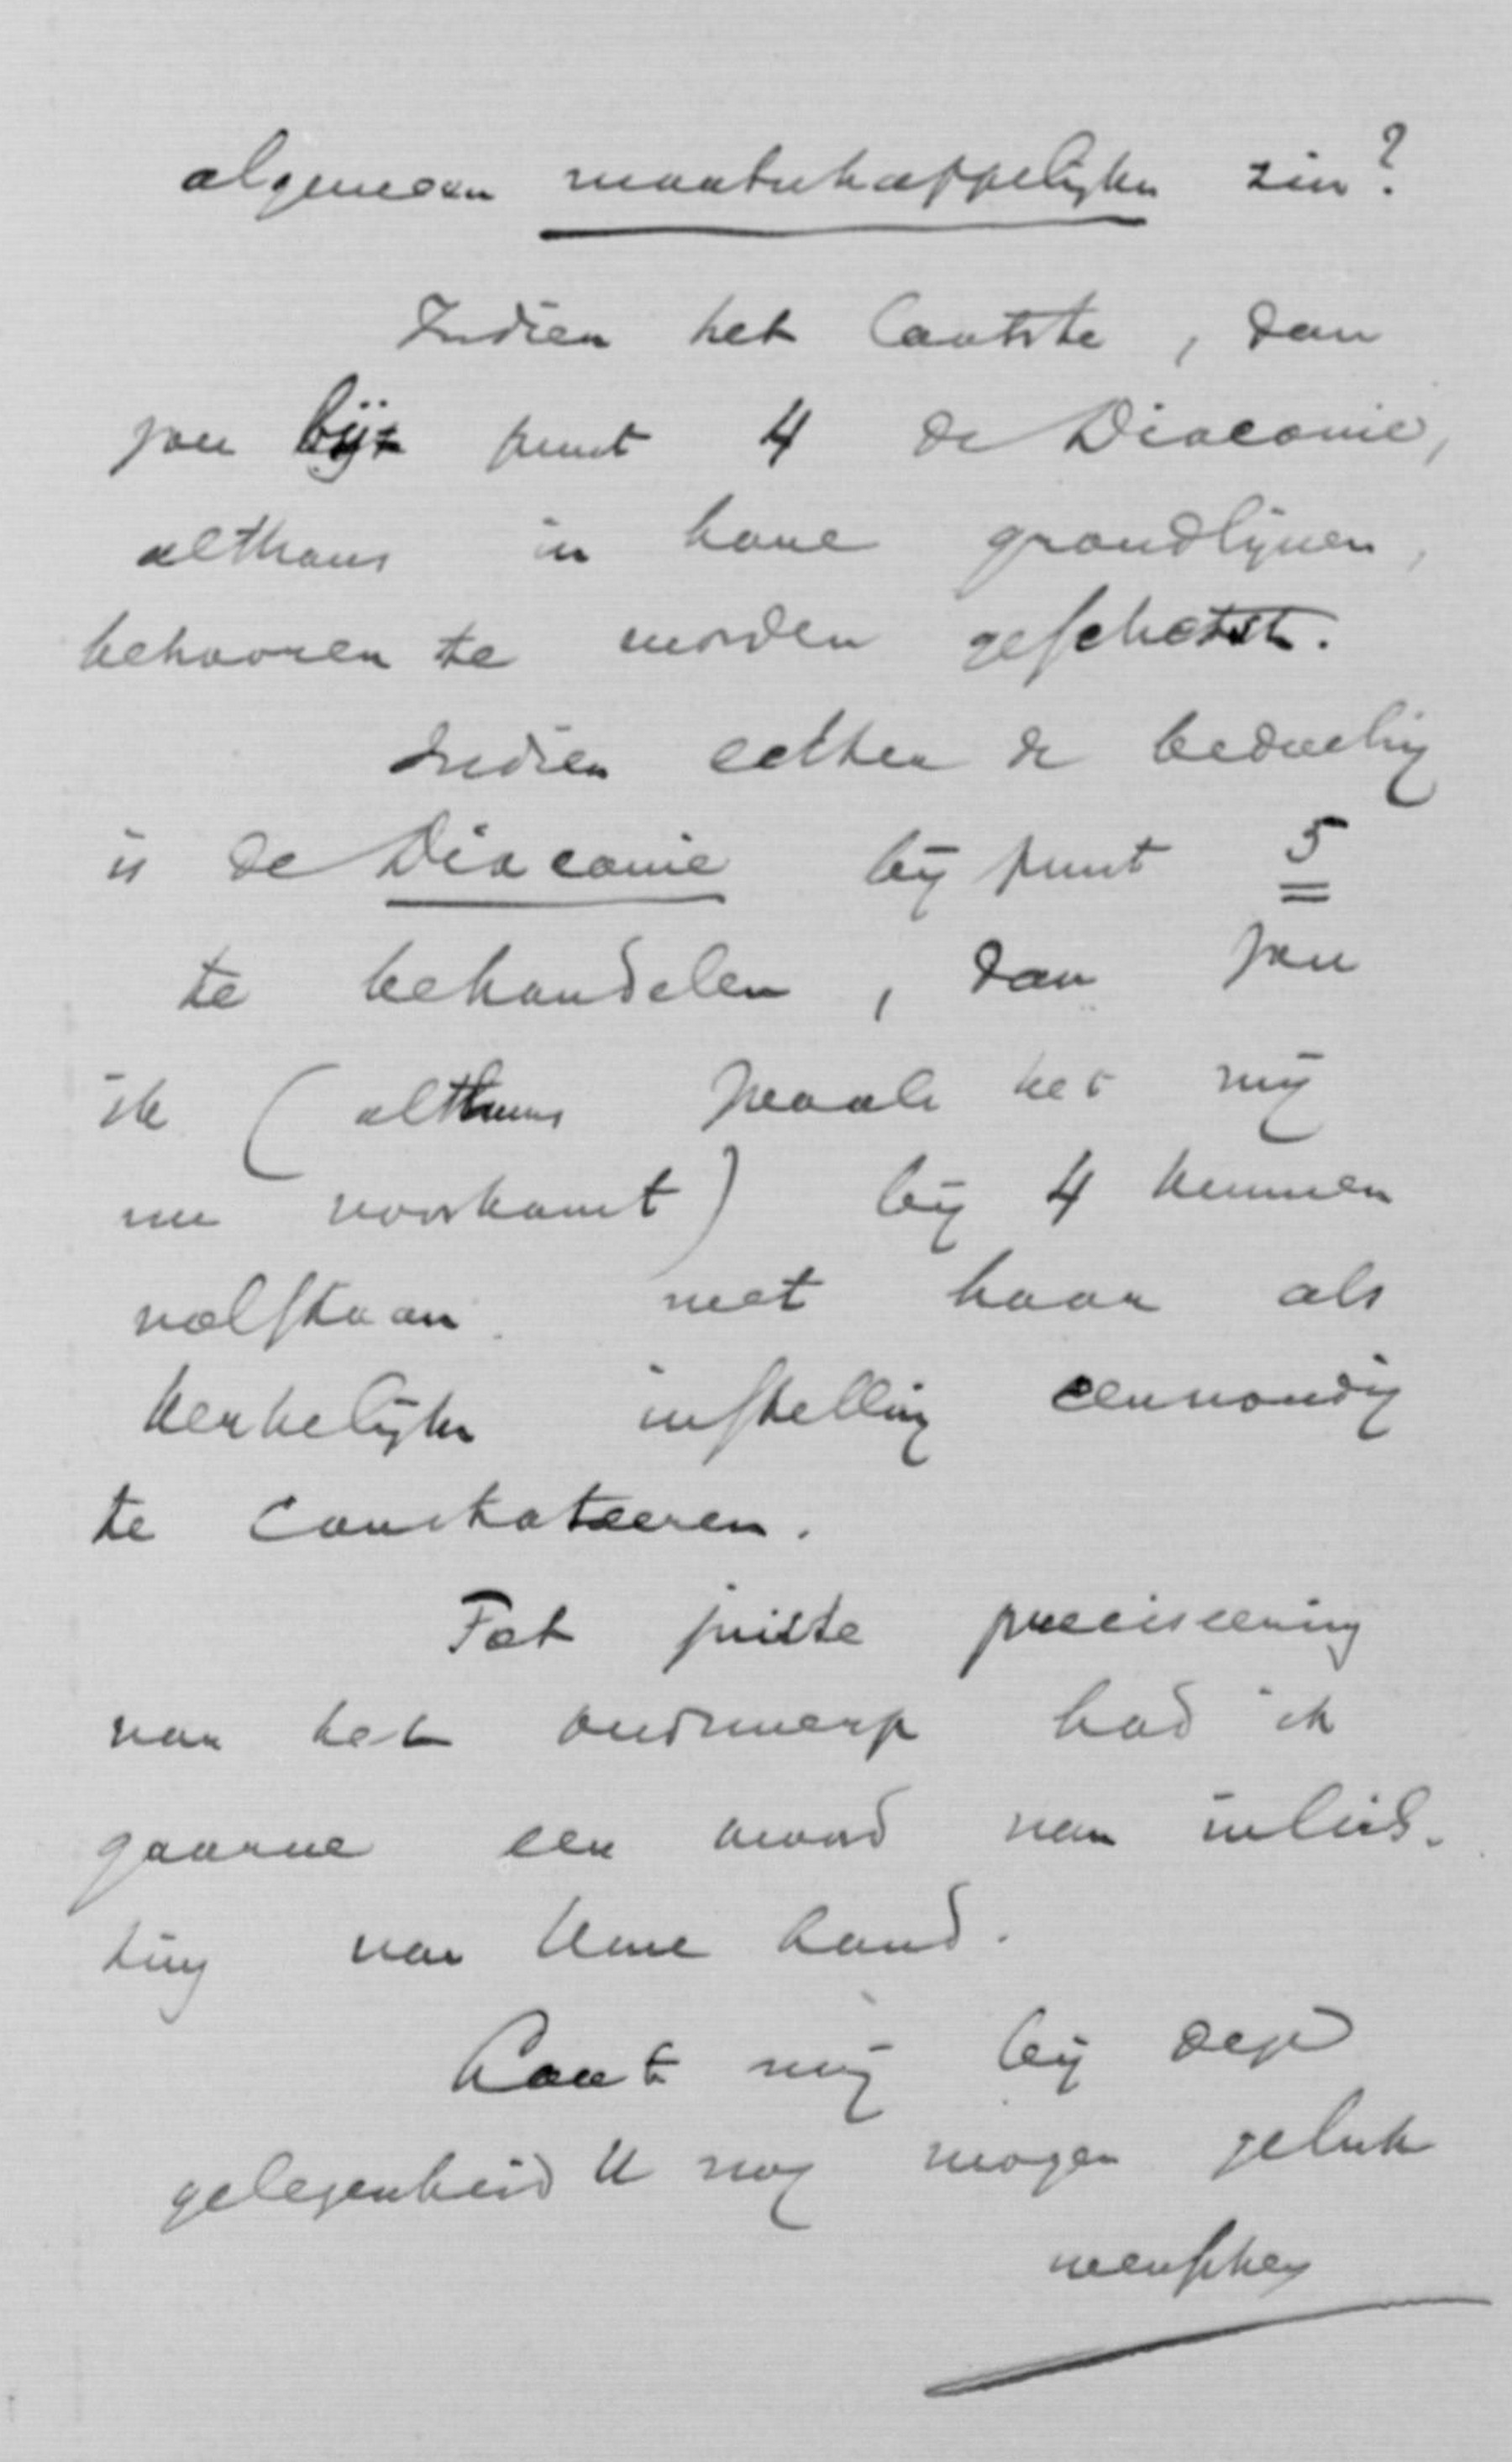 algemeen maatschappelijken zin?
Indien het laatste, dan
zou bij punt 4 de Diaconie,
althans in hare grondlijnen,
behooren te worden geschetst.
Indien echter de bedoeling
is de Diaconie bij punt 5
te behandelen, dan zou
ik (althans zooals het mij
nu voorkomt) bij 4 kunnen
volstaan met haar als
kerkelijke instelling eenvoudig
te constateeren.
Tot juiste preciseering
van het onderwerp had ik
gaarne een woord van inlich-
ting van Uwe hand.
Laat mij bij deze
gelegenheid U nog mogen geluk
wenschen